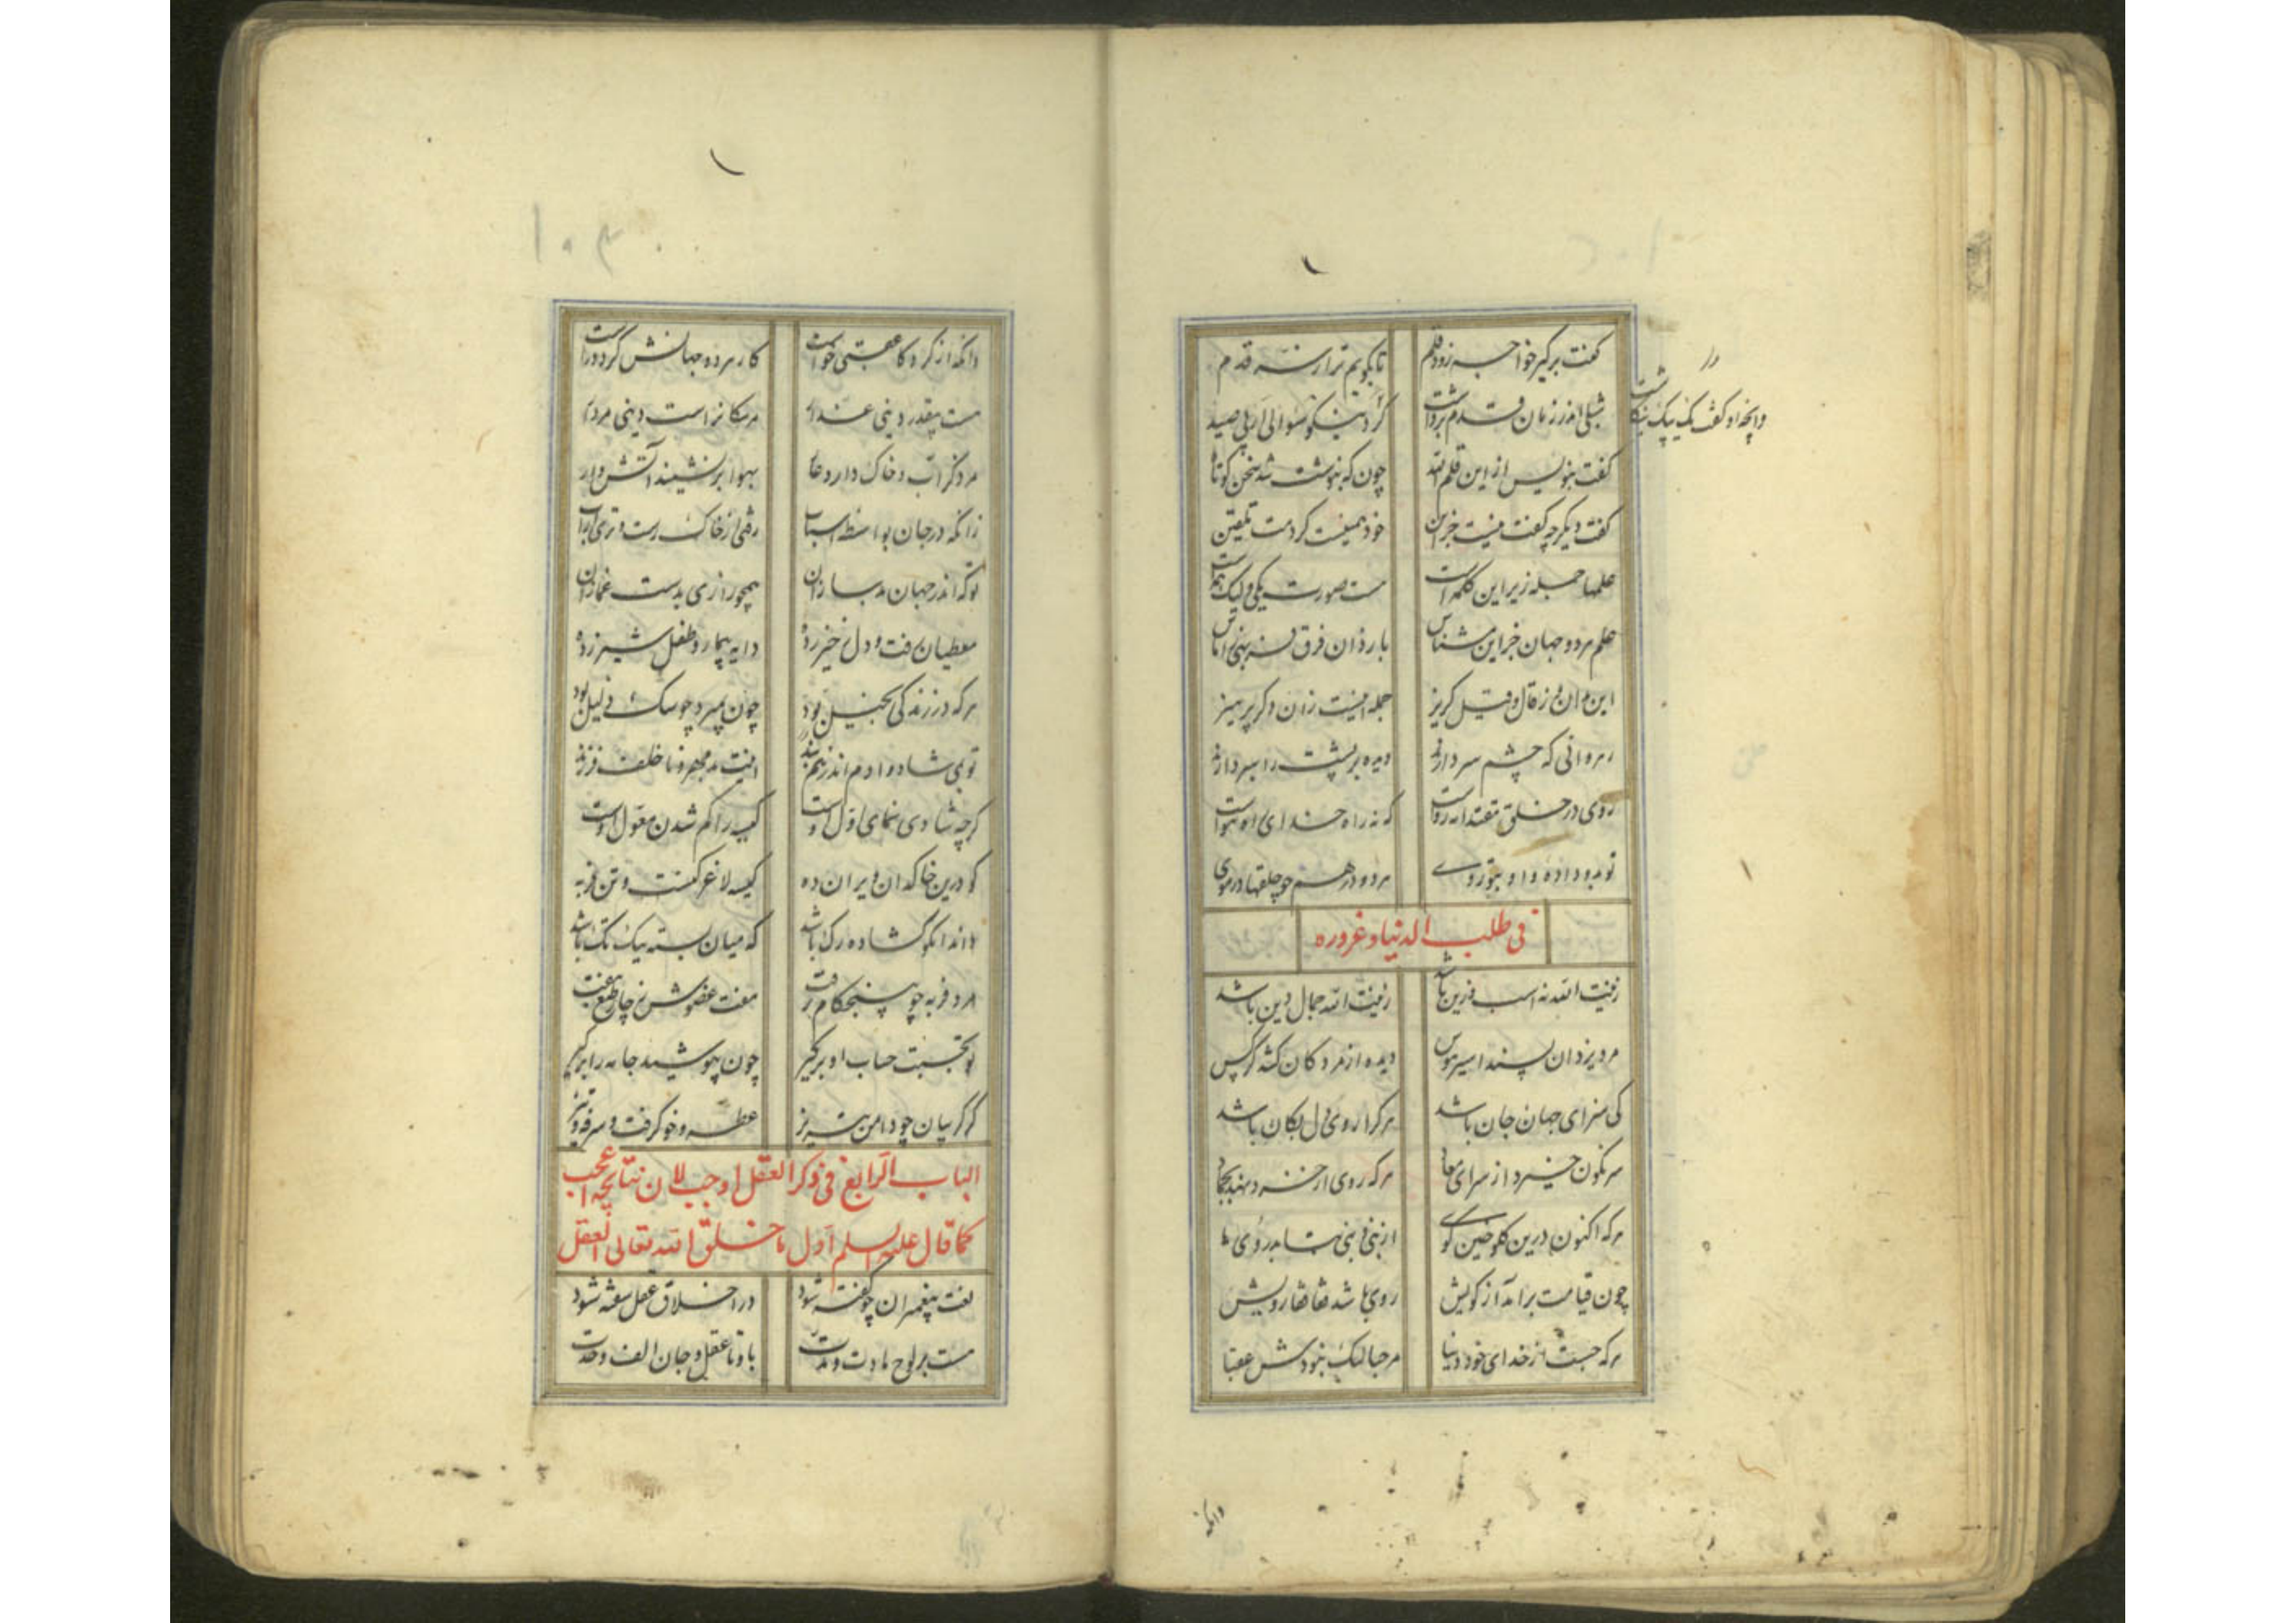 گفت برگیر خواجه زود قلم تا بگویم ترا ز سر قدم
شبلی اندر زمان قلم برداشت
وانچه او گفت یک بیک بنگاشت
گفت بنویس از این قلم الله چون که بنوشت شد سخن کوتاه
گفت دیگر چه گفت نیست جز این خود همینست کردمت تلقین
علمها جمله زیر این کلمه است هست صورت یکی ولیک همه است
علم هر دو جهان جز این مشناس باز دان فرق فربهی ز آماس
این بدان و ز قال و قیل گریز جمله اینست زان دگر پرهیز
رهروانی که چشم سر دارند دیده بر پشت را سپر دارند
روی در خلق مقتدا نه رواست که نه راه خدای راه هواست
تو بدو داده و او بتو روی هر دو در هم چو حلقها در موی
فی طلب الدنیا و غروره
زینت الله نه اسب و زین باشد زینت الله جمال دین باشد
مرد یزدان پسند اسیر هوس دیده از مردگان کشد کرکس
کی سزای جهان جان باشد هر کرا روی دل بکان باشد
سرنگون خیزد از سرای معاد هر که روی از خرد نهد بجماد
هر که اکنون درین کلوخین کوی
چون قیامت برآید از کویش روی باشد قفا قفا رویش
هر که جست از خدای خود دنیا مرحبا لیک نبودش عقبا
وانکه
۱۰۳
وانکه از کردگار عقبی خواست کار هر دو جهانش گردد راست
هست بیقدر دینی غدار مر سگانراست دینی مردار
مرد کز آب و خاک دارد عار بهوا بر نشیند آتش‌وار
زانکه در جان بواسطه اسباب رقی از خاک رست و تری آب
تو که اندر جهان بد سازان همچو رازی بدست غمازان
معطیان مفت و دل ز خیر زده دایه بیمار و طفل شیر زده
هر که در زندگی بخیل بود چون بمیرد چو سگ ذلیل بود
توبی شاد و آدم اندر بند اینت بد مهر و ناخلف فرزند
گرچه شادی نمای اول اوست کیسه را گم شدن معول اوست
کو درین خاکدان ویران ده کیسه لاغر کنست و تن فربه
داند آنکو گشاده رگ باشد که میان بسته نیک تگ باشد
مرد فربه چو پنج گام رفت هفت عضوش ز چار طبع بتفت
تو بجست حساب او برگیر چون بپوشید جامه را بر گیر
کز گریبان چو دامن تبریز عطسه و خو گرفت و سرفه و تیز
الباب الرابع فی ذکر العقل اوجب لان نتائجه اعجب
کما قال علیه السلم اول ما خلق الله تعالی العقل
نعت پیغمبران چو گفته شود در اخلاق عقل سفته شود
هست بر لوح مادت و مدت با و تا عقل و جان الف وحدت